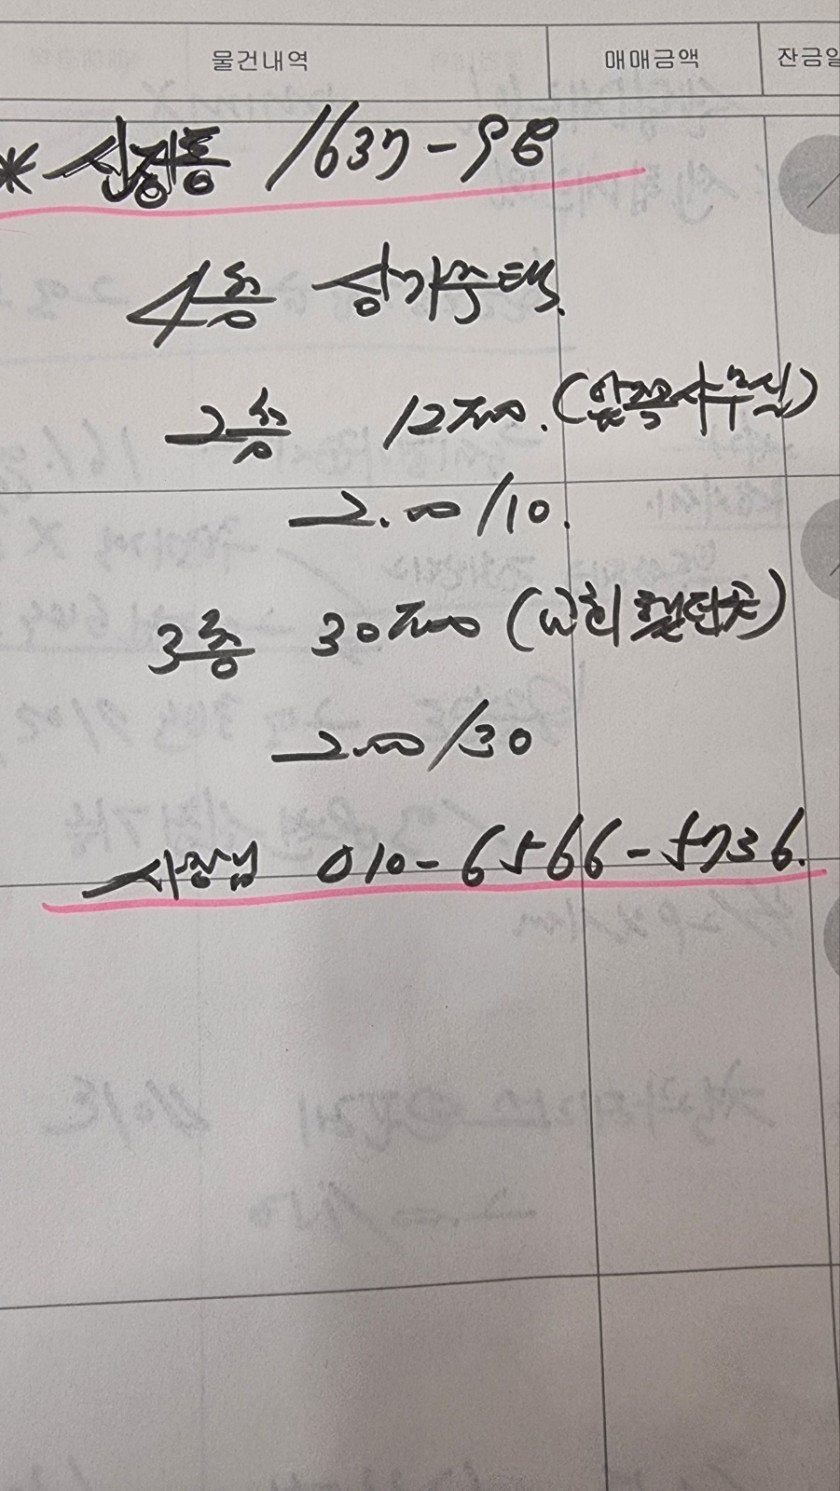 물건내역 매매금액 잔금일
* 신정동 1637-98
4층 상가주택.
2층 12평 (왼쪽사무실)
200/10.
3층 30평 (교회 했던곳)
200/30
사장님 010-6566-5736.